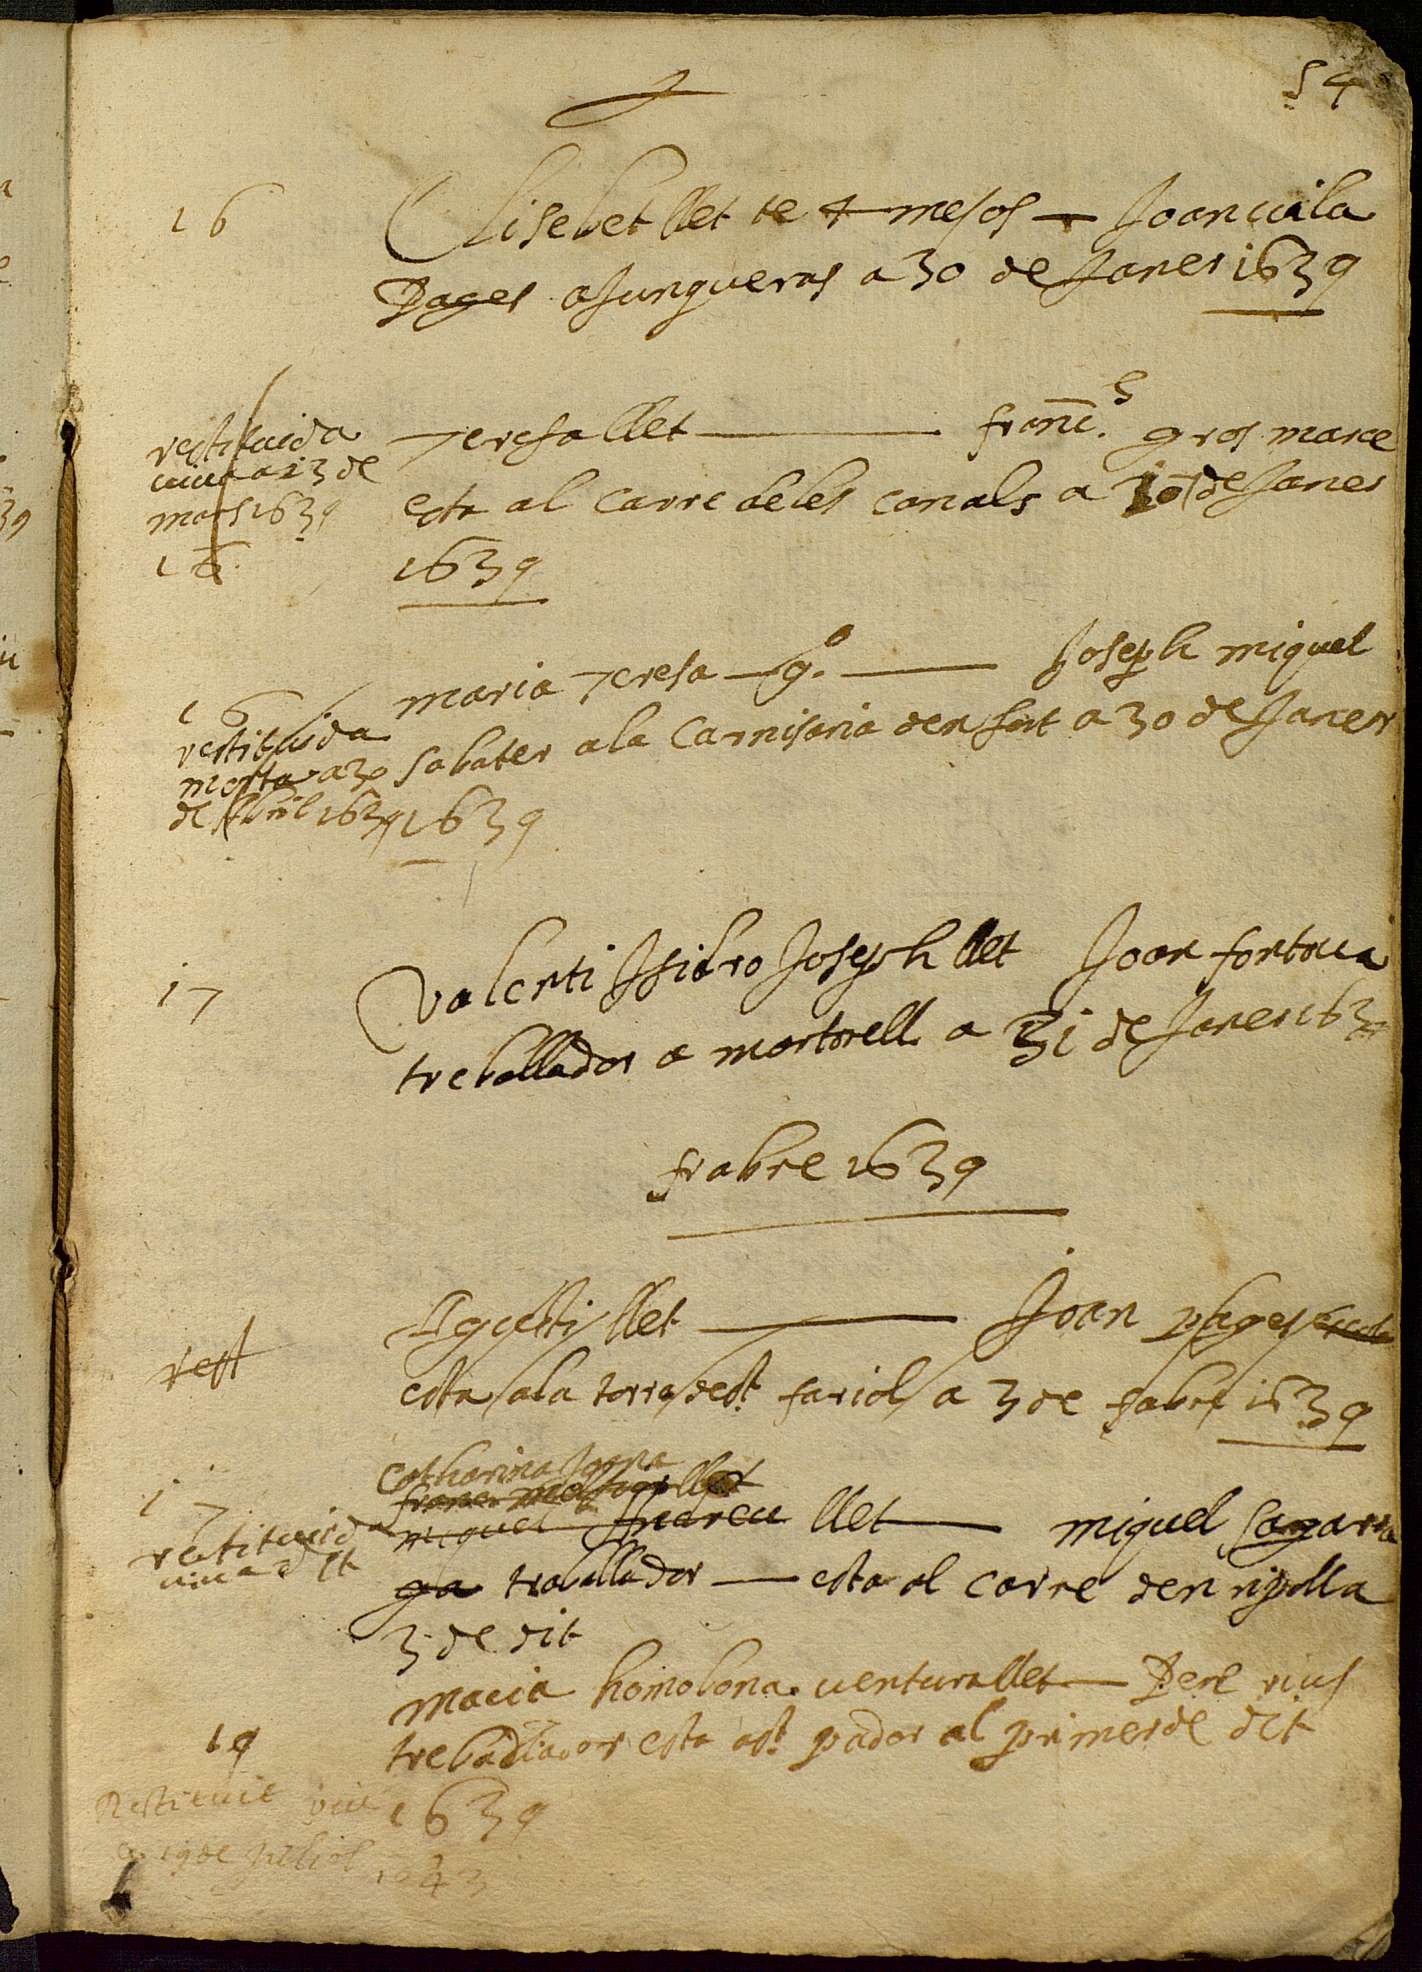 54
16
Elisebet llet te 4 mesos — Joan vila
Pages a Junqueras a 30 de Janer 1639
restituida
viva a 23 de
mars 1639
16
Teresa llet — franc.s gros marce
esta al carre de les canals a 30 de Janer
1639
16
restituida
morta a 30
de Abril 1639
maria Teresa — g.a — Joseph miquel
sabater a la Carnisaria den sort a 30 de Janer
1639
17
Valenti Isidro Joseph llet Joan fontova
treballador a martorell a 31 de Janer 1639
frabre 1639
rest
Agusti llet — Joan pages
esta a la torra de st. fariol a 3 de fabre 1639
17
restituida
viva a dit
Catharina Joana
miquel Andreu llet — miquel sagarra
ga traballador — esta al carre den ripoll a
3 de dit
19
macia homobona ventura llet — Pere rius
treballador esta a st. pador al primer de dit
1639
Restituit viu
a 19 de juliol 1643